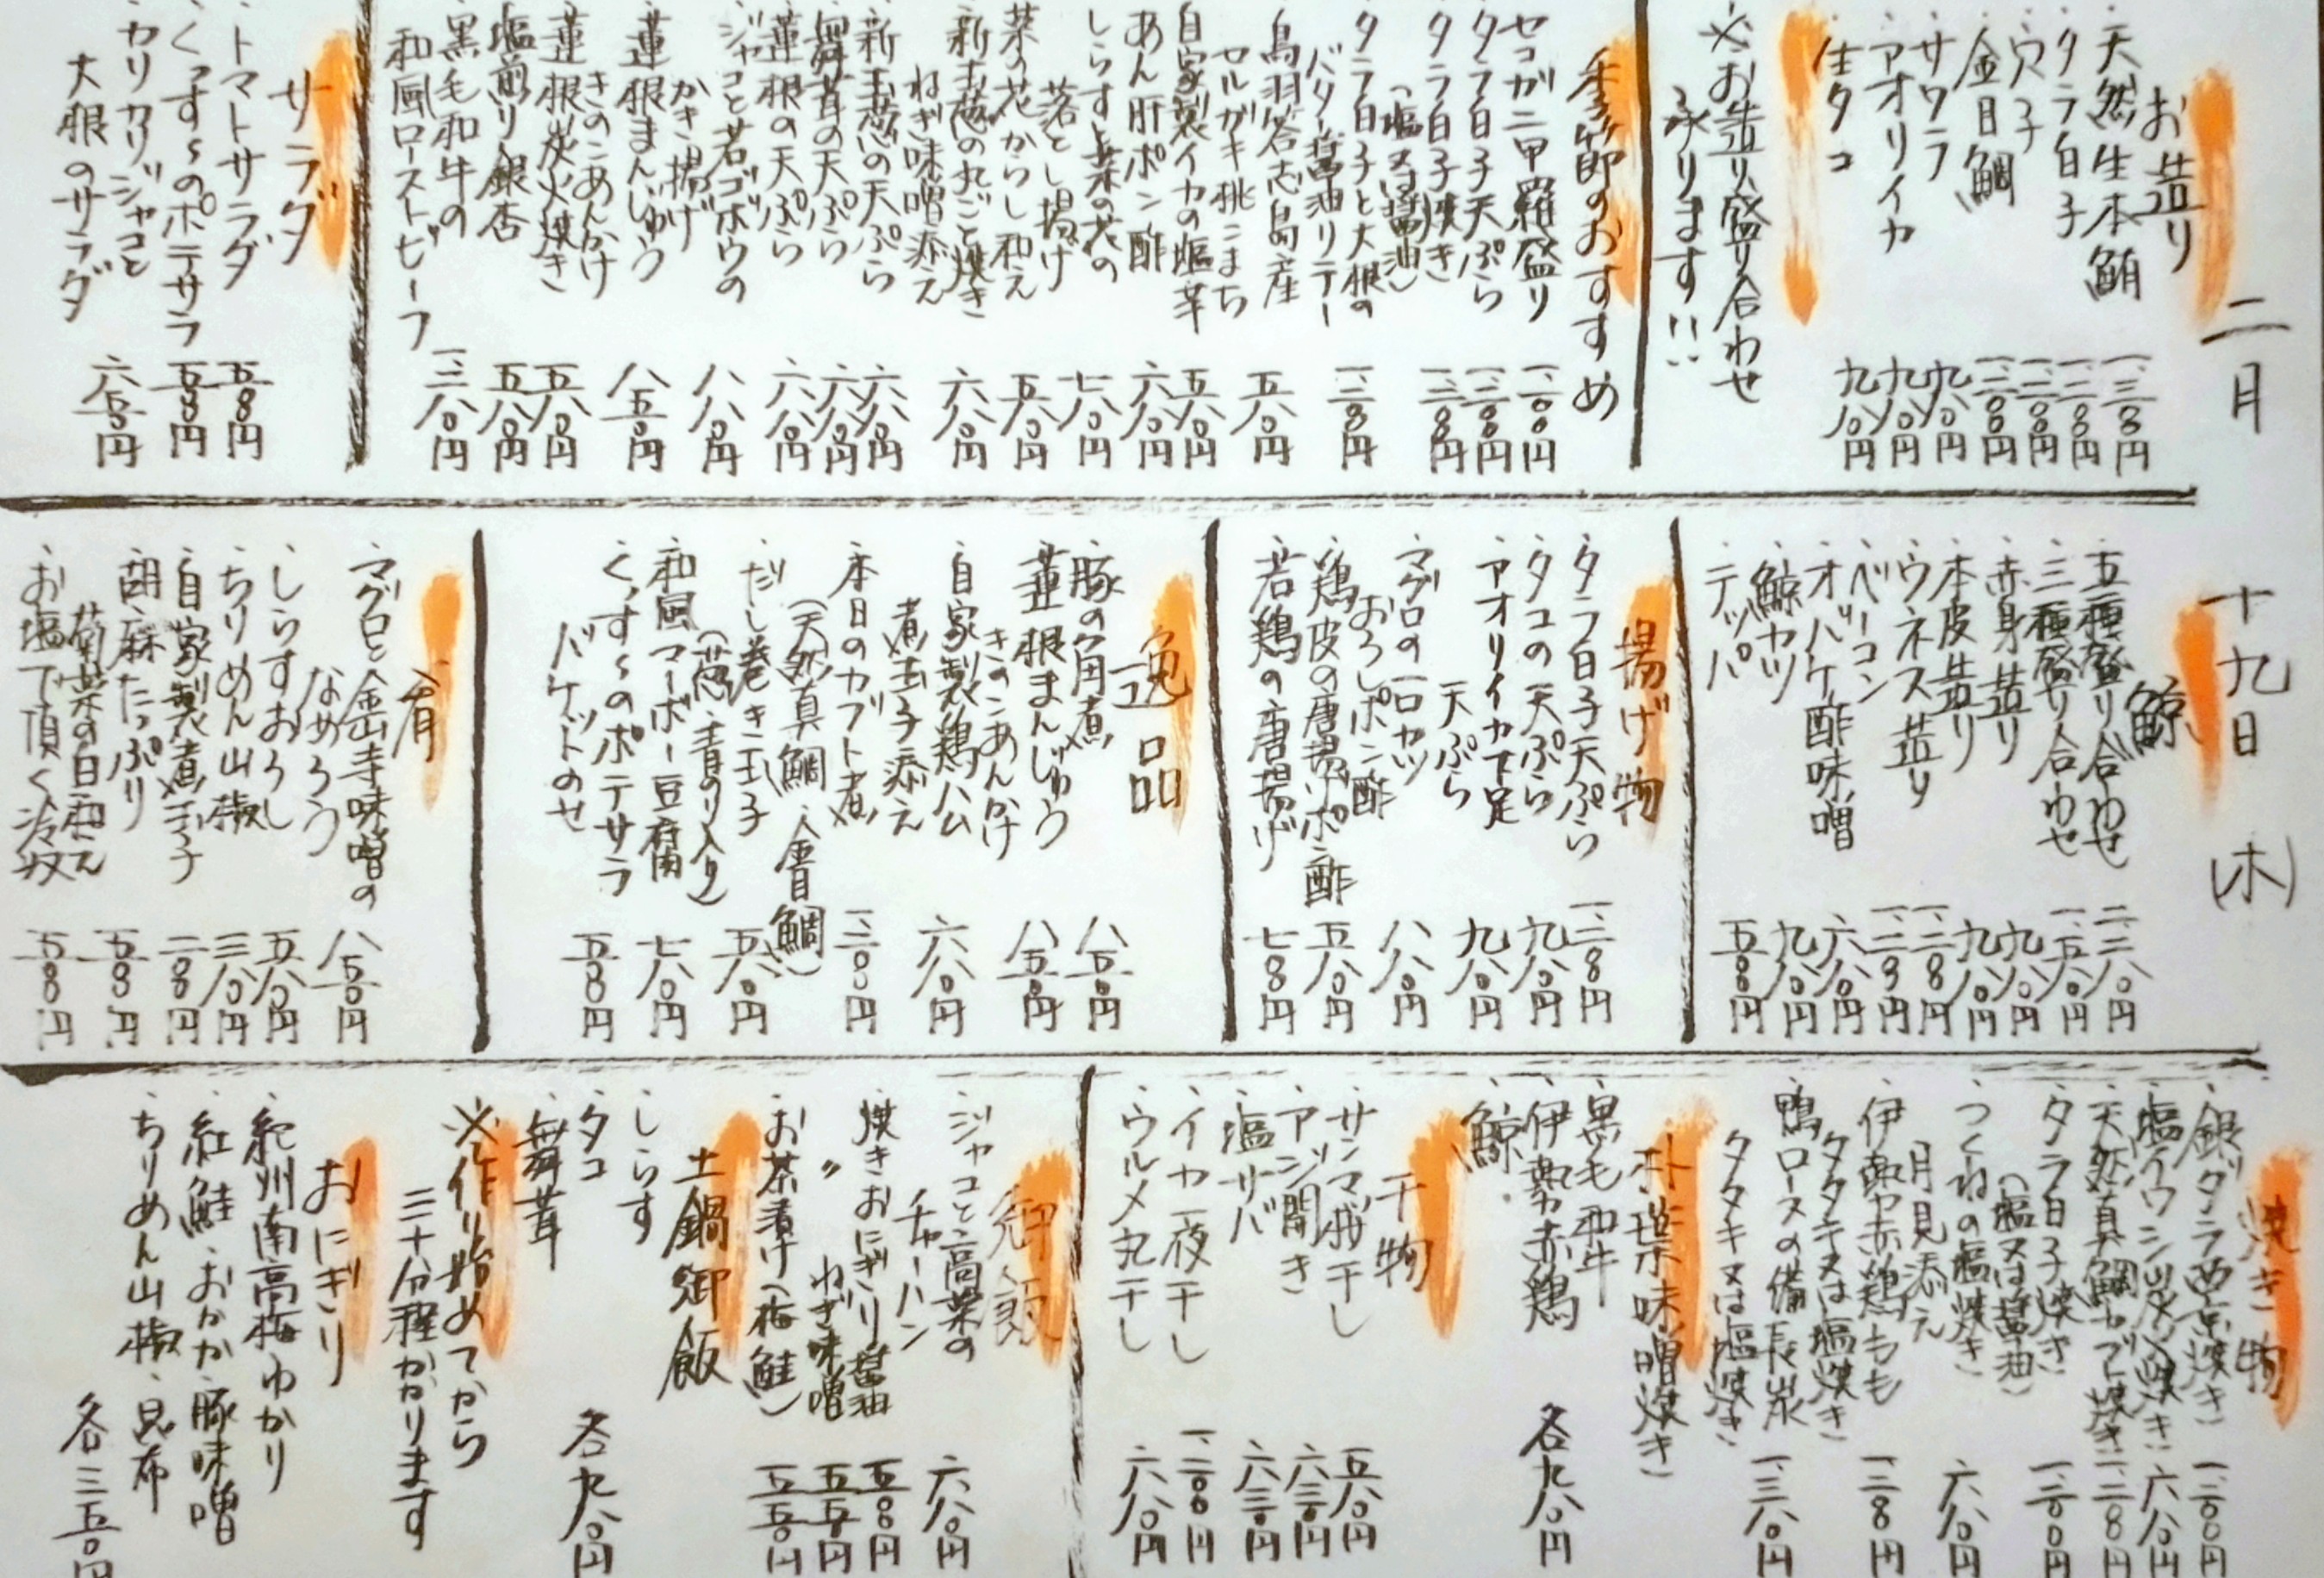 二月 十九日 (木)
お造り
・天然生本鮪
・タラ白子
・穴子
・金目鯛
・サワラ
・アオリイカ
・生タコ 九八〇円
※お造り盛り合わせ
承ります!!
季節のおすすめ
・セコガニ甲羅盛り
・タラ白子天ぷら
・タラ白子焼き
(塩又は醤油)
・タラ白子と大根の
バター醤油ソテー
・鳥羽答志島産
セルガキ桃こまち 五八〇円
・自家製イカの塩辛 五八〇円
・あん肝ポン酢 六八〇円
・しらすと菜の花の
落とし揚げ 七八〇円
・菜の花からし和え 五八〇円
・新玉葱の丸ごと焼き
ねぎ味噌添え 六八〇円
・新玉葱の天ぷら 六八〇円
・舞茸の天ぷら 六八〇円
・蓮根の天ぷら 六八〇円
・ジャコと若ゴボウの
かき揚げ 八八〇円
・蓮根まんじゅう
きのこあんかけ 八五〇円
・蓮根炭火焼き 五八〇円
・塩煎り銀杏 五八〇円
・黒毛和牛の
和風ローストビーフ
サラダ
・トマトサラダ 五五〇円
・くっすぅのポテサラ 五五〇円
・カリカリジャコと
大根のサラダ 六五〇円
鯨
・五種盛り合わせ
・三種盛り合わせ
・赤身造り 九八〇円
・本皮造り 九八〇円
・ウネス造り
・ベーコン
・オバケ酢味噌 六八〇円
・鯨カツ 九八〇円
・テッパ 五五〇円
揚げ物
・タラ白子天ぷら
・タコの天ぷら 九八〇円
・アオリイカ下足
天ぷら 九八〇円
・マグロの一口カツ
おろしポン酢 八八〇円
・鶏皮の唐揚げポン酢 五八〇円
・若鶏の唐揚げ
逸品
・豚の角煮 八五〇円
・蓮根まんじゅう
きのこあんかけ 八五〇円
・自家製鶏ハム
煮玉子添え 六八〇円
・本日のカブト煮
(天然真鯛・金目鯛)
・だし巻き玉子
(葱・青のり入り) 五八〇円
・和風マーボー豆腐 七八〇円
・くっすぅのポテサラ
バケットのせ 五五〇円
肴
・マグロと金山寺味噌の
なめろう 八五〇円
・しらすおろし 五八〇円
・ちりめん山椒 三八〇円
・自家製煮玉子
・胡麻たっぷり
菊菜の白和え 五五〇円
・お塩で頂く冷奴 五五〇円
焼き物
・銀ダラ西京焼き
・塩イワシ炭火焼き 六八〇円
・天然真鯛カブト焼き
・タラ白子焼き
(塩又は醤油)
・つくねの塩焼き
月見添え 六八〇円
・伊勢赤鶏もも
タタキ又は塩焼き
・鴨ロースの備長炭
タタキ又は塩焼き
朴葉味噌焼き
・黒毛和牛
・伊勢赤鶏
・鯨 各九八〇円
干物
・サンマ丸干し 五八〇円
・アジ開き 六三〇円
・塩サバ 六三〇円
・イカ一夜干し
・ウルメ丸干し 六八〇円
御飯
・ジャコと高菜の
チャーハン 六八〇円
・焼きおにぎり醤油 五〇〇円
・〃 ねぎ味噌 五五〇円
・お茶漬け(梅・鮭) 五五〇円
土鍋御飯
・しらす
・タコ
・舞茸 各九八〇円
※作り始めてから
三十分程かかります
おにぎり
・紀州南高梅・ゆかり
・紅鮭・おかか・豚味噌
・ちりめん山椒・昆布
各三五〇円